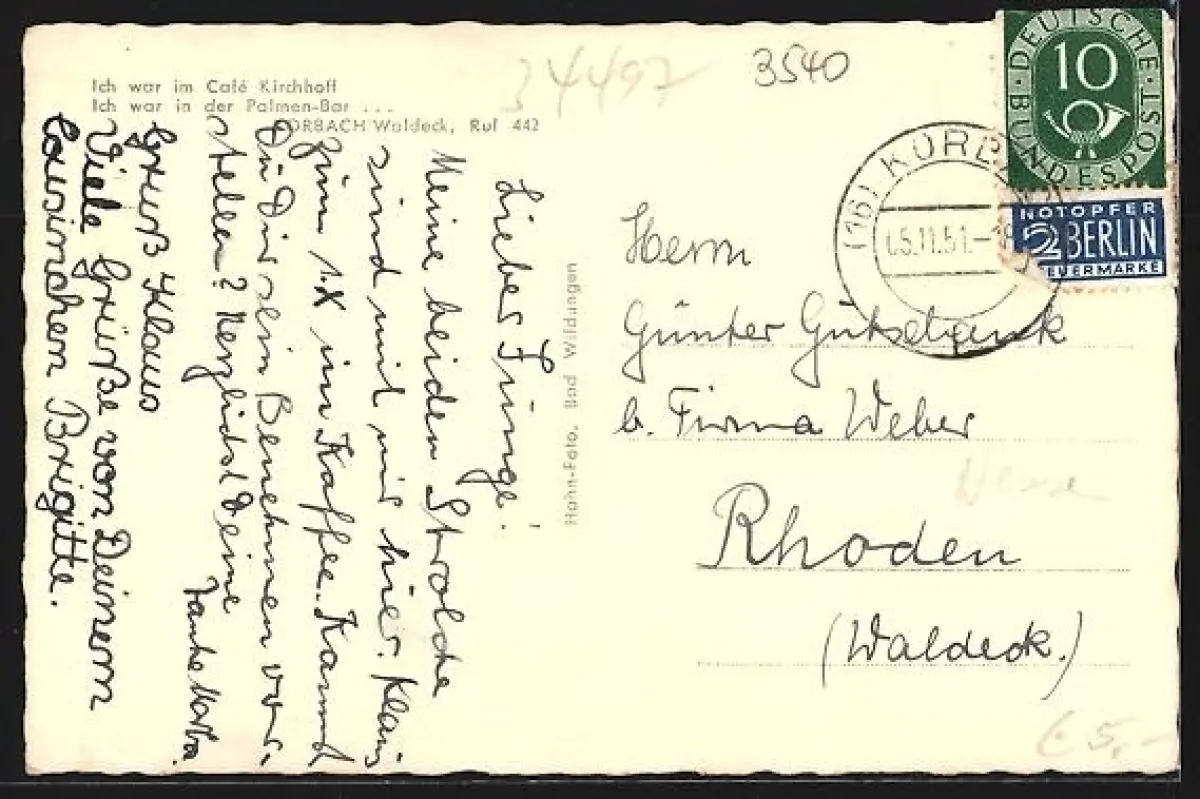 Ich war im Café Kirchhoff
Ich war in der Palmen-Bar ...
KORBACH/Waldeck, Ruf 442
34497
3540
DEUTSCHE BUNDESPOST
10
NOTOPFER
2 BERLIN
STEUERMARKE
(16) KORBACH
05.11.51.-18
Lieber Junge!
Meine beiden Strolche
sind mit mir hier. Klaus
zum 1.X im Kaffee. Kannst
Du Dir sein Benehmen vor-
stellen? Herzlichst Deine
Tante Martha.
Gruß Klaus
Viele Grüße von Deinem
Cousinchen Brigitte.
Hahn-Foto, Bad Wildungen
Herrn
Günter Gutschank
b. Firma Weber
Rhoden
(Waldeck.)
5,-